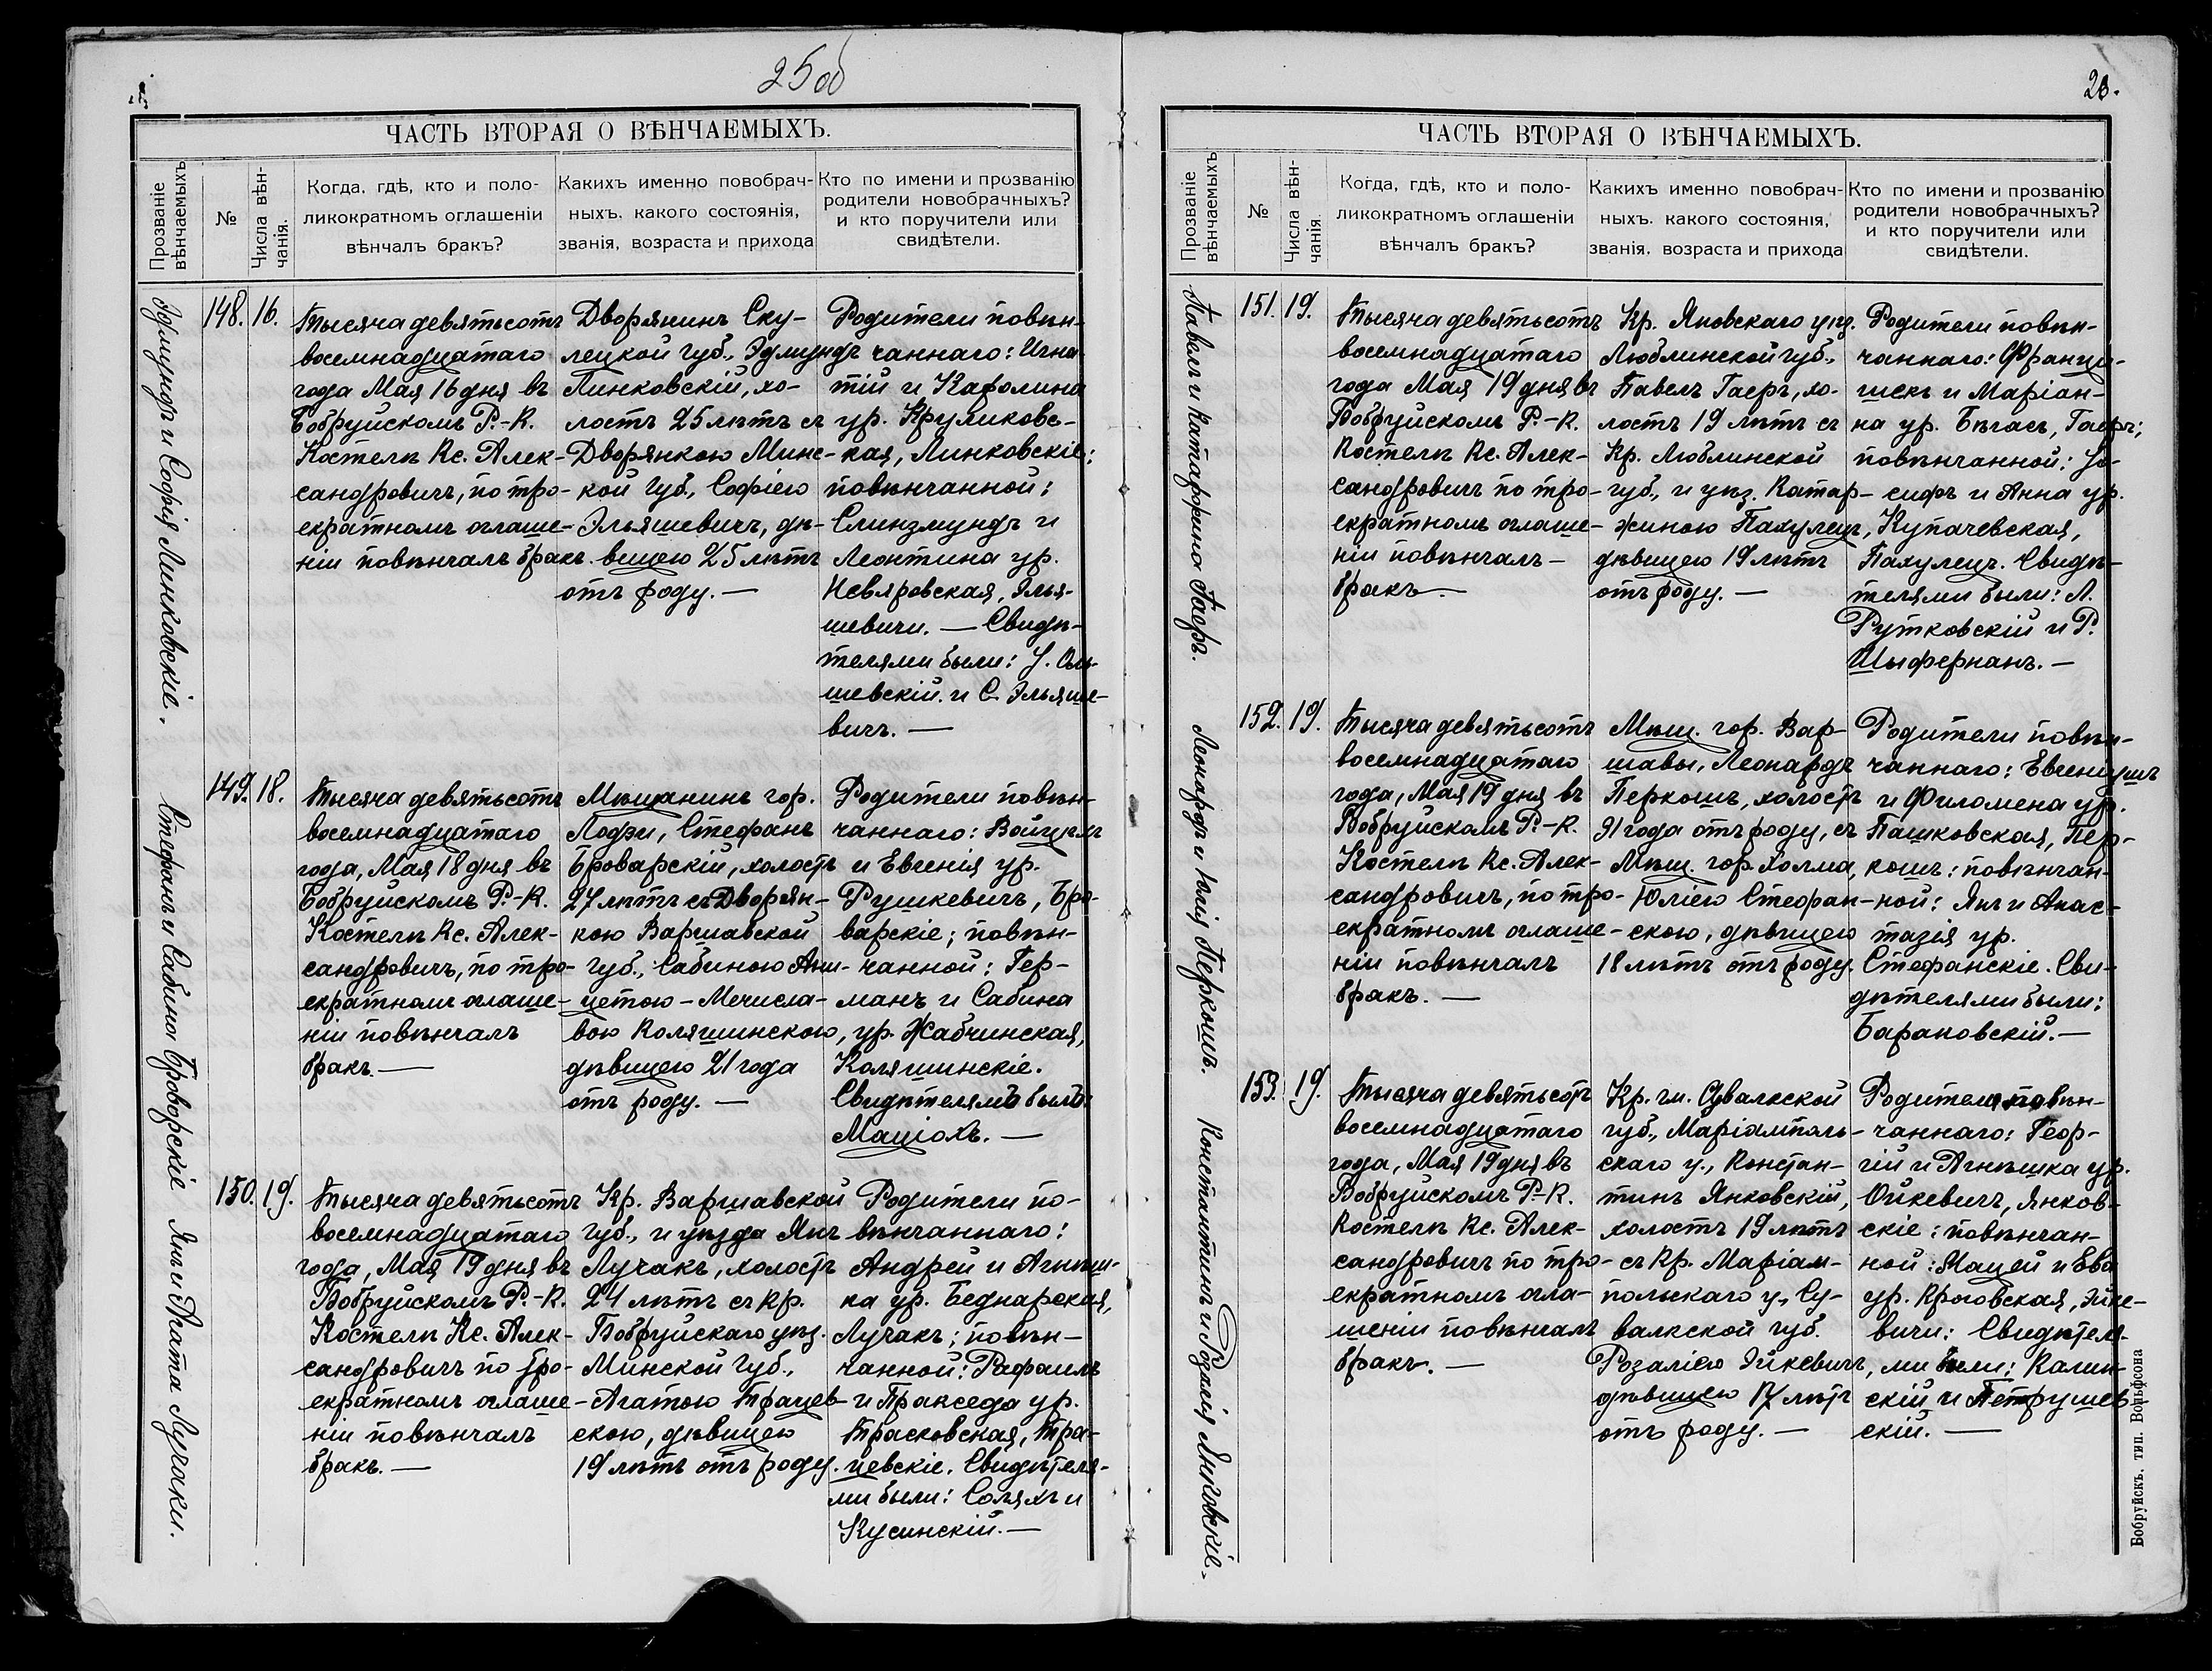 25об
ЧАСТЬ ВТОРАЯ О ВѢНЧАЕМЫХЪ.
Прозваніе вѣнчаемыхъ
№
Числа вѣнчанія.
Когда, гдѣ, кто и поло-
ликократномъ оглашеніи
вѣнчалъ бракъ?
Какихъ именно повобрач-
ныхъ. какого состоянія,
званія, возраста и прихода
Кто по имени и прозванію
родители новобрачныхъ?
и кто поручители или
свидѣтели.
Эдмундъ и Софія Линковскіе.
148. 16.
Тысяча девятьсотъ
восемнадцатаго
года Мая 16 дня въ
Бобруйскомъ Р.-К.
Костелѣ Кс. Алек-
сандровичъ, по тро-
екратномъ оглаше-
ніи повѣнчалъ бракъ.
Дворянинъ Ску-
лецкой губ., Эдмундъ
Линковскій, хо-
лостъ 25 лѣтъ съ
Дворянкою Минс-
кой губ., Софіею
Эльяшевичъ, дѣ-
вицею 25 лѣтъ
отъ роду. —
Родители повѣн-
чаннаго: Игна-
тій и Каролина
ур. Круликовс-
кая, Линковскіе;
повѣнчанной:
Слинзмундъ и
Леонтина ур.
Невяровская, Элья-
шевичи. — Свидѣ-
телями были: У. Оль-
шевскій и С. Эльяше-
вичъ. —
Стефанъ и Сабина Броварскіе
149. 18.
Тысяча девятьсотъ
восемнадцатаго
года, Мая 18 дня въ
Бобруйскомъ Р.-К.
Костелѣ Кс. Алек-
сандровичъ, по тро-
екратномъ оглаше-
ніи повѣнчалъ
бракъ. —
Мѣщанинъ гор.
Лодзи, Стефанъ
Броварскій, холостъ
27 лѣтъ съ Дворян-
кою Варшавской
губ., Сабиною Ани-
цетою-Мечисла-
вою Коляшинскою,
дѣвицею 21 года
отъ роду. —
Родители повѣн-
чаннаго: Войцѣхъ
и Евгенія ур.
Рушкевичъ, Бро-
варскіе; повѣн-
чанной: Гер-
манъ и Сабина
ур. Жабчинская,
Коляшинскіе.
Свидѣтелямъ былъ:
Маціохъ. —
Янъ и Агата Лучаки.
150. 19.
Тысяча девятьсотъ
восемнадцатаго
года, Мая 19 дня въ
Бобруйскомъ Р.-К.
Костелѣ Кс. Алек-
сандровичъ по тро-
екратномъ оглаше-
ніи повѣнчалъ
бракъ. —
Кр. Варшавской
губ., и уѣзда Янъ
Лучакъ, холостъ
24 лѣтъ съ кр.
Бобруйскаго уѣз.
Минской губ.,
Агатою Трацев-
скою, дѣвицею
19 лѣтъ отъ роду.
Родители по-
вѣнчаннаго:
Андрей и Агнѣш-
ка ур. Беднарская,
Лучакъ; повѣн-
чанной: Рафаилъ
и Пракседа ур.
Трасковская, Тра-
цевскіе. Свидѣтеля-
ми были: Соляхъ и
Кусинскій. —
ЧАСТЬ ВТОРАЯ О ВѢНЧАЕМЫХЪ.
Прозваніе вѣнчаемыхъ
№
Числа вѣнчанія.
Когда, гдѣ, кто и поло-
ликократномъ оглашеніи
вѣнчалъ бракъ?
Какихъ именно повобрач-
ныхъ. какого состоянія,
званія. возраста и прихода
Кто по имени и прозванію
родители новобрачныхъ?
и кто поручители или
свидѣтели.
Павелъ и Катаржина Гаеръ.
151. 19.
Тысяча девятьсотъ
восемнадцатаго
года Мая 19 дня въ
Бобруйскомъ Р.-К.
Костелѣ Кс. Алек-
сандровичъ по тро-
екратномъ оглаше-
ніи повѣнчалъ —
бракъ —
Кр. Яновскаго уѣз.
Люблинской губ.,
Павелъ Гаеръ, хо-
лостъ 19 лѣтъ съ
Кр. Люблинской
губ., и уѣз. Катар-
жиною Пахулецъ,
дѣвицею 19 лѣтъ
отъ роду. —
Родители повѣн-
чаннаго: Франци-
шекъ и Маріан-
на ур. Бѣгасъ, Гаеръ;
повѣнчанной: Іо-
сифъ и Анна ур.
Купачевская,
Пахулецъ. Свидѣ-
телями были: Л.
Рутковскій и Р.
Шыфернанъ. —
Леонардъ и Юлія Перкошъ.
152. 19.
Тысяча девятьсотъ
восемнадцатаго
года, Мая 19 дня въ
Бобруйскомъ Р.-К.
Костелѣ Кс. Алек-
сандровичъ, по тро-
екратномъ оглаше-
ніи повѣнчалъ
бракъ. —
Мѣщ. гор. Вар-
шавы, Леонардъ
Перкошъ, холостъ
21 года отъ роду, съ
Мѣщ. гор Холма,
Юліею Стефан-
скою, дѣвицею
18 лѣтъ отъ роду.
Родители повѣн-
чаннаго: Евгеніушъ
и Филомена ур.
Пашковская, Пер-
кошъ: повѣнчан-
ной: Янъ и Анас-
тазія ур.
Стефанскіе. Сви-
дѣтелями были:
Барановскій. —
Константинъ и Розалія Янковскіе.
153. 19.
Тысяча девятьсотъ
восемнадцатаго
года, Мая 19 дня въ
Бобруйскомъ Р-К.
Костелѣ Кс. Алек-
сандровичъ по тро-
екратномъ огла-
шеніи повѣнчалъ
бракъ. —
Кр. гм. Сувалкской
губ., Маріамполь-
скаго у., Констан-
тинъ Янковскій,
холостъ 19 лѣтъ
съ Кр. Маріам-
польскаго у, Су-
валкской губ.
Розаліею Эйкевичъ,
дѣвицею 17 лѣтъ
отъ роду. —
Родители повѣн-
чаннаго: Геор-
гій и Агнѣшка ур.
Ойкевичъ, Янков-
скіе: повѣнчан-
ной: Мацей и Ева
ур. Крыговская, Эйке-
вичи: Свидѣтеля-
ми были: Калин-
скій и Петрушев-
скій. —
Бобруйскъ, тип. Вольфсона